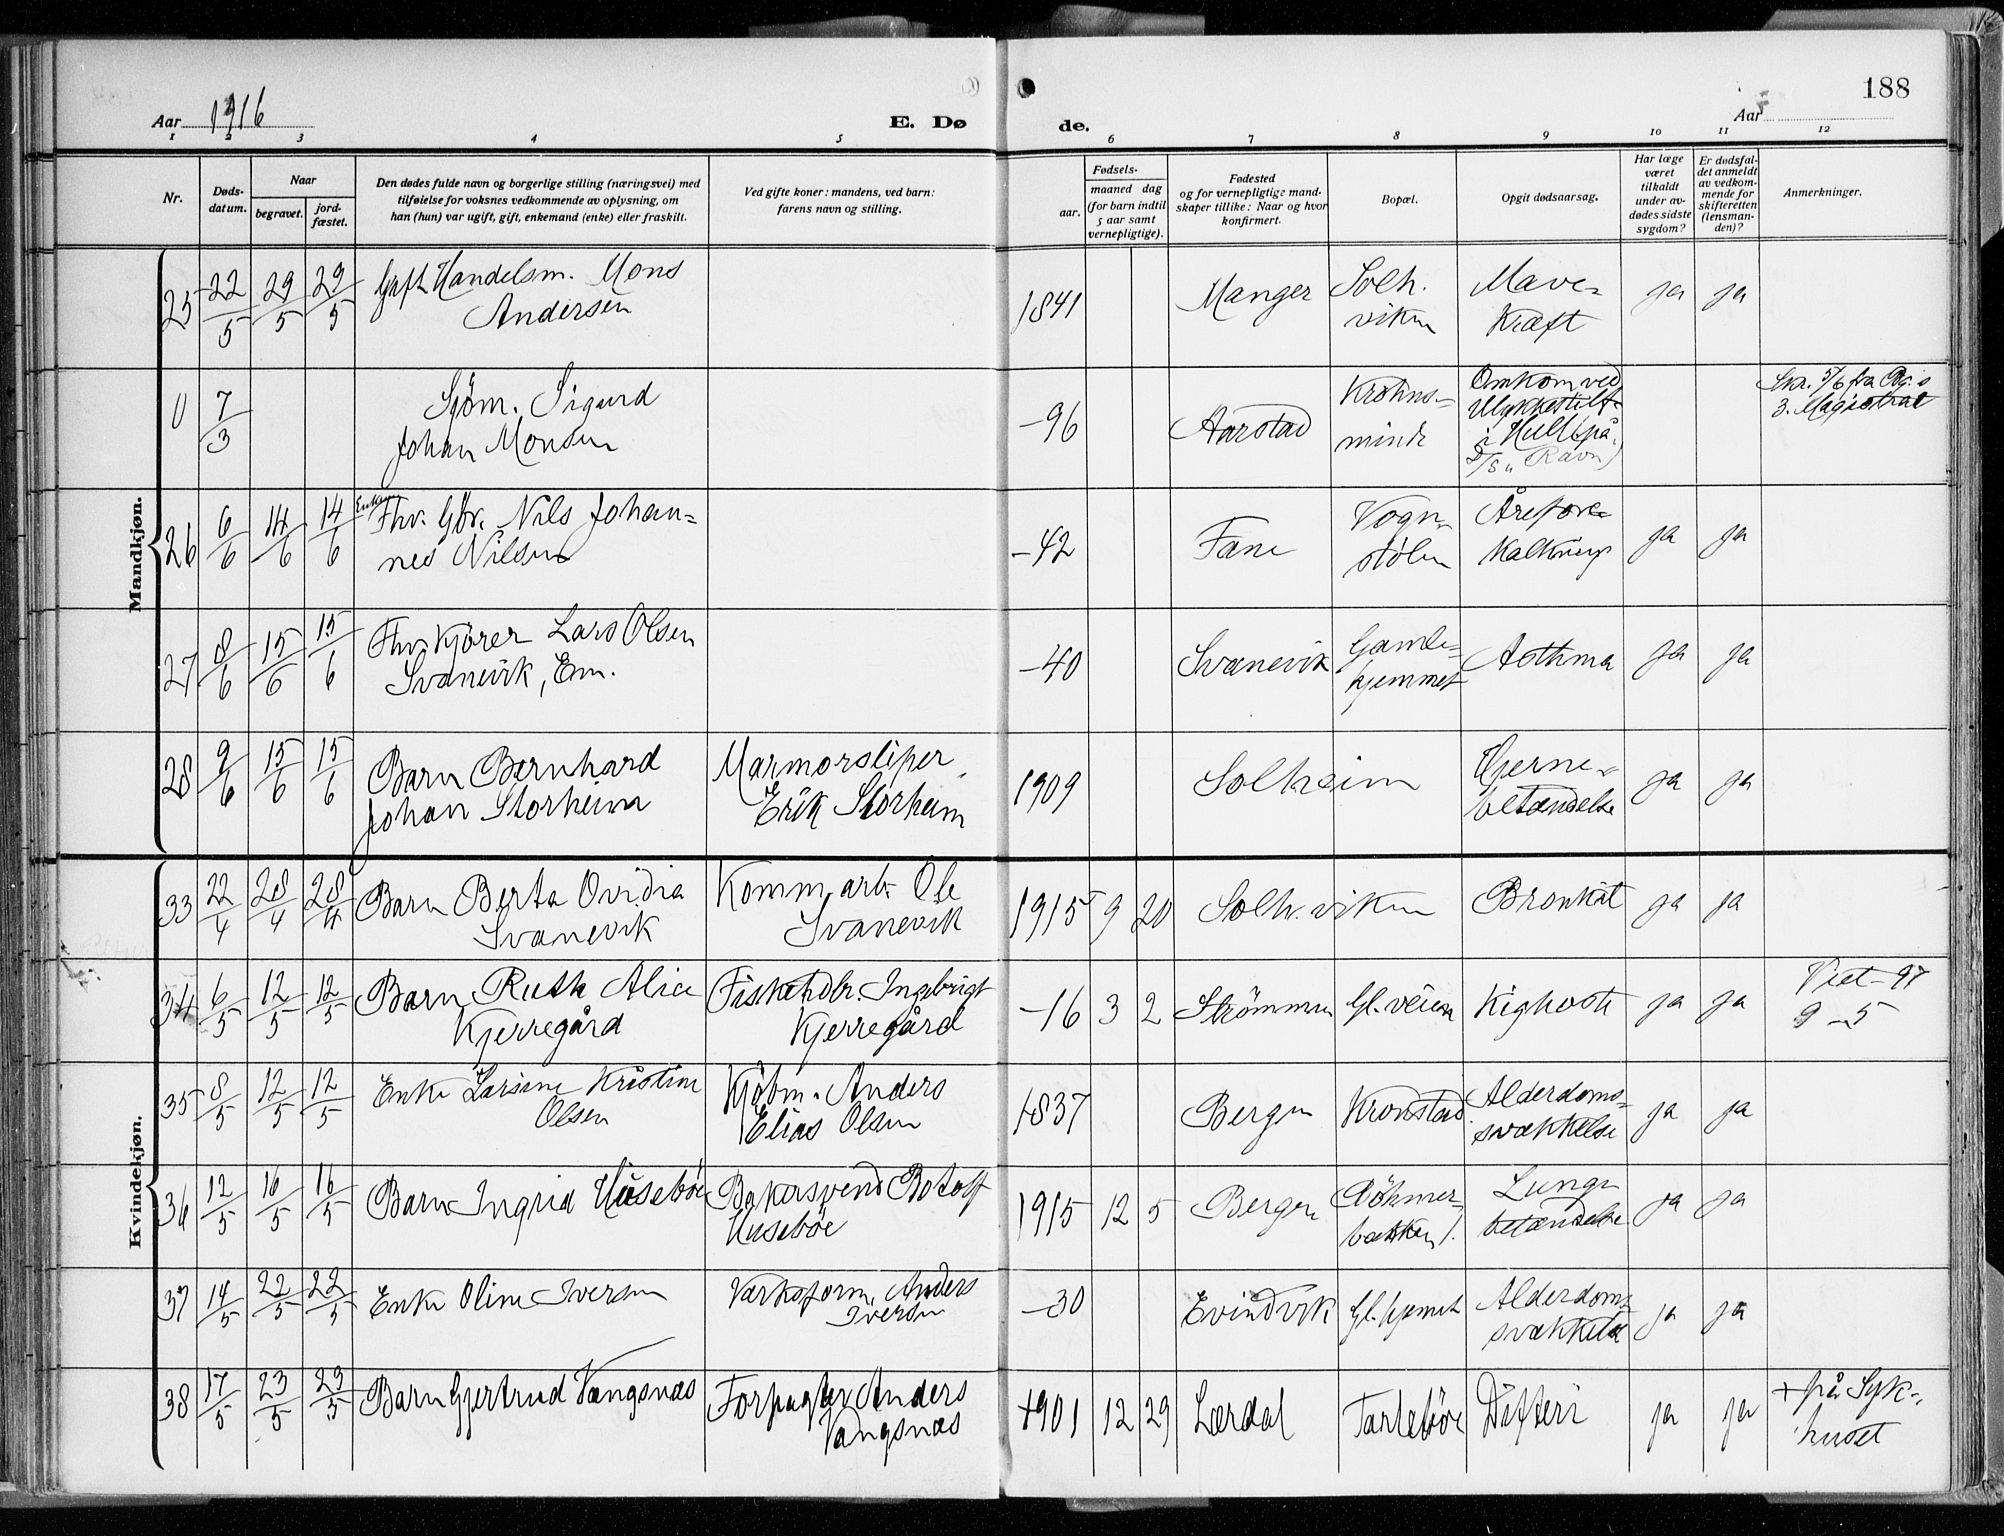 188
Aar 1916
E. Dø
de.
Aar
1 2 3 4 5 6 7 8 9 10 11 12
Nr.
Døds-
datum.
Naar
begravet.
jord-
fæstet.
Den dødes fulde navn og borgerlige stilling (næringsvei) med
tilføielse for voksnes vedkommende av oplysning, om
han (hun) var ugift, gift, enkemand (enke) eller fraskilt.
Ved gifte koner: mandens, ved barn:
farens navn og stilling.
Fødsels-
aar.
maaned dag
(for barn indtil
5 aar samt
vernepligtige).
Fødested
og for vernepligtige mand-
skaper tillike: Naar og hvor
konfirmert.
Bopæl.
Opgit dødsaarsag.
Har læge
været
tilkaldt
under av-
dødes sidste
sygdom?
Er dødsfal-
det anmeldt
av vedkom-
mende for
skifteretten
(lensman-
den)?
Anmerkninger.
Mandkjøn.
25 22/5 29/5 29/5 Gift Handelsm. Mons
Andersen
1841 Manger Solh.
viken
Mave-
kræft
ja ja
0 7/3 Sjöm. Sigurd
Johan Monsen
-96 Aarstad Krohns-
minde
Omkom ved
Ulykkestilf.
i Hull (på
D/S „Ravn)
Skr. 5/6 fra
3. Magistrat
26 6/6 14/6 14/6 Enkem. Fhv. Gbr. Nils Johan=
nes Nilsen
-42 Fane Vogn-
stølen
Årefor-
kalkning
ja ja
27 8/6 15/6 15/6 Fhv. Kjører Lars Olsen
Svanevik, Em.
-40 Svanevik Gamle-
hjemmet
Asthma
ja ja
28 9/6 15/6 15/6 Barn Bernhard
Johan Storheim
Marmorsliper
Erik Storheim
1909 Solheim Hjerne-
betændelse
ja ja
Kvindekjøn.
33 22/4 28/4 28/4 Barn Berta Ovidia
Svanevik
Komm. arb. Ole
Svanevik
1915 9 20 Solh. viken Bronkit ja ja
34 6/5 12/5 12/5 Barn Ruth Alice
Kjerregård
Fiskehdlr. Ingebrigt
Kjerregård
-16 3 2 Strömmen Gl. veien Kighoste ja ja
9-5
35 8/5 12/5 12/5 Enke Larsine Kristine
Olsen
Kjöbm. Anders
Elias Olsen
1837 Bergen Kronstad Alderdoms-
svækkelse
ja ja
36 12/5 16/5 16/5 Barn Ingrid Husebøe
Bakersvend Botolf
Husebøe
1915 12 5 Bergen Böhmer-
bakken 1.
Lunge
betændelse
ja ja
37 14/5 22/5 22/5 Enke Oline Iversen
Værksform. Anders
Iversen
-30 Evindvik Gl. hjemmet Alderdoms-
svækkelse
ja ja
38 17/5 23/5 23/5 Barn Gjertrud Vangsnæs
Forpagter Anders
Vangsnæs
1901 12 29 Lærdal Tarlebøe Difteri ja ja
+ på Syk-
huset